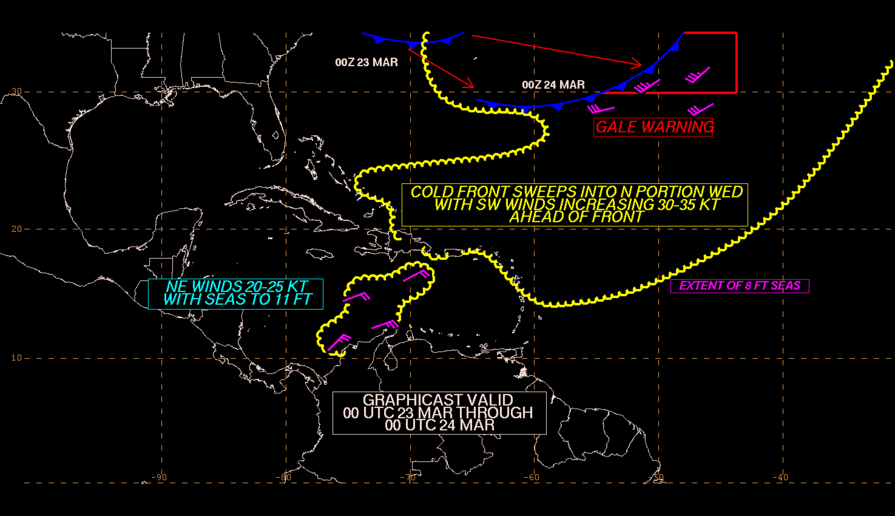 00Z 23 MAR
00Z 24 MAR
30
GALE WARNING
COLD FRONT SWEEPS INTO N PORTION WED
WITH SW WINDS INCREASING 30-35 KT
AHEAD OF FRONT
20
NE WINDS 20-25 KT
WITH SEAS TO 11 FT
EXTENT OF 8 FT SEAS
10
GRAPHICAST VALID
00 UTC 23 MAR THROUGH
00 UTC 24 MAR
-90
-80
-70
-60
-50
-40